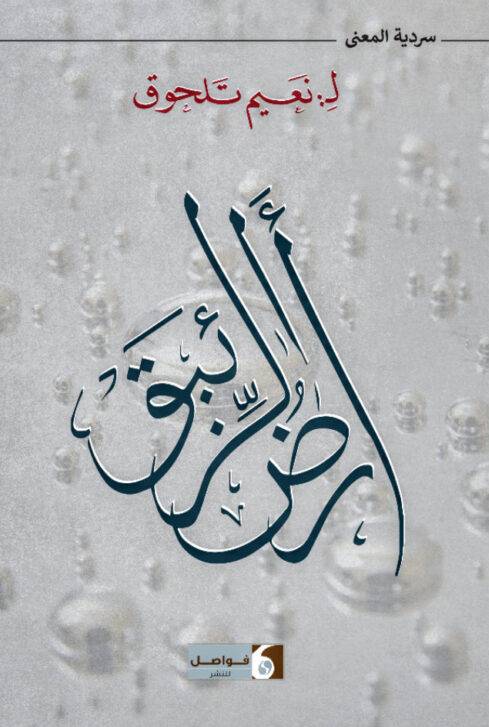 سردية المعنى
لِ: نَعَيم تَلحوق
أرض الزّئبق
فواصل
للنشر